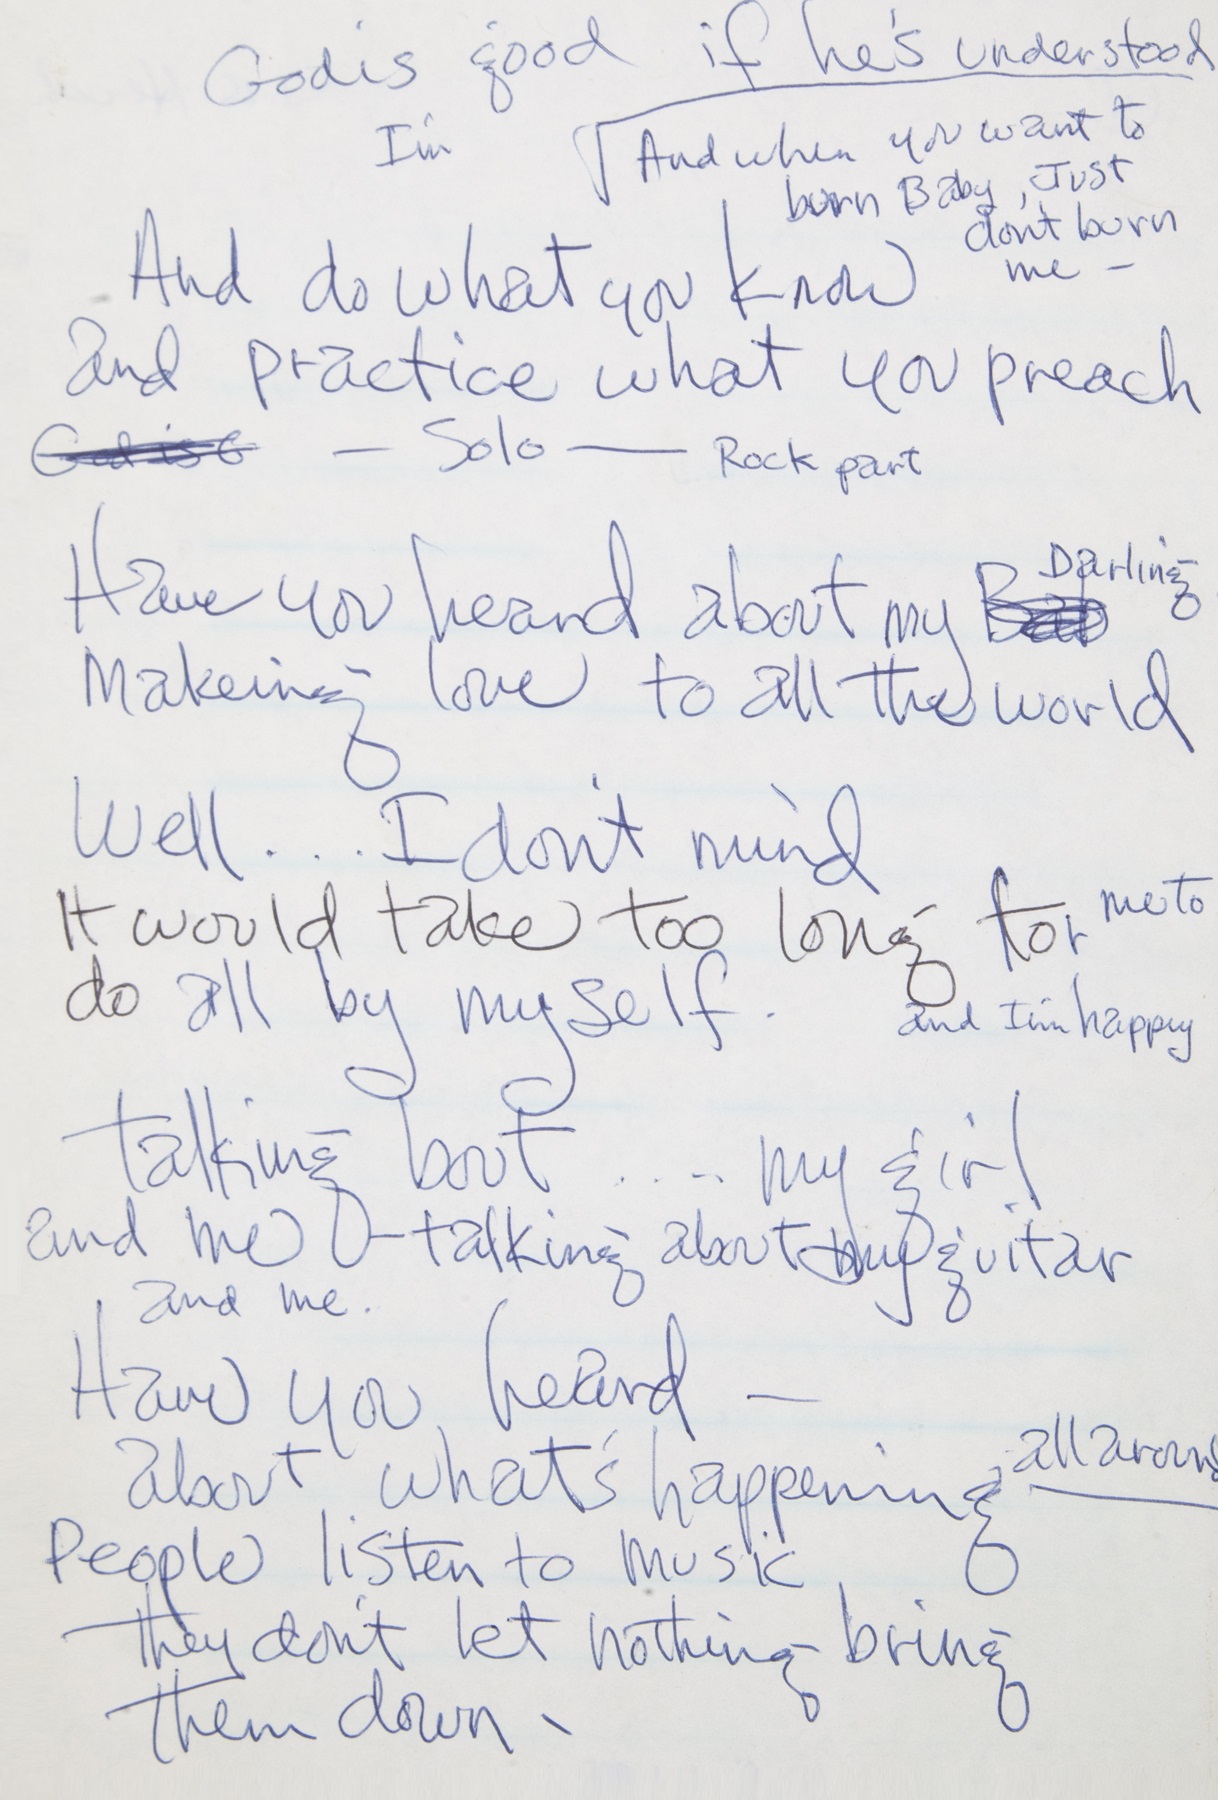 God is good if he's understood
I'm
And when you want to
burn Baby, Just
don't burn
me -
And do what you know
and practice what you preach
God is G — Solo — Rock part
Darling
Have you heard about my
Makeing love to all the world
Well... I don't mind
It would take too long for me to
do all by myself.
and I'm happy
talking bout .... my girl
and me - talking about my guitar
and me.
Have you heard —
about what's happening all around
People listen to music
they don't let nothing bring
them down.